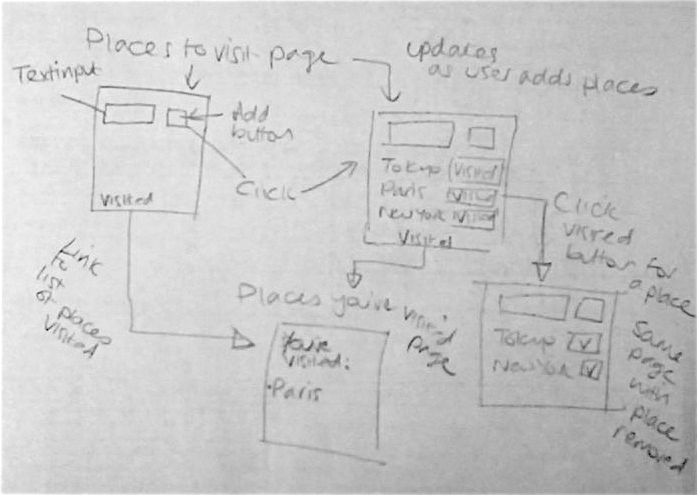 Places to visit page
updates
as user adds places
Textinput
Add
button
Visited
Click
Tokyo Visited
Paris Visited
New York Visited
Visited
Click
visited
button for
a place
Link
to
list
of places
visited
Places you've visited
page
You've
visited:
•Paris
Tokyo V
New York V
Same
page
with
place
removed